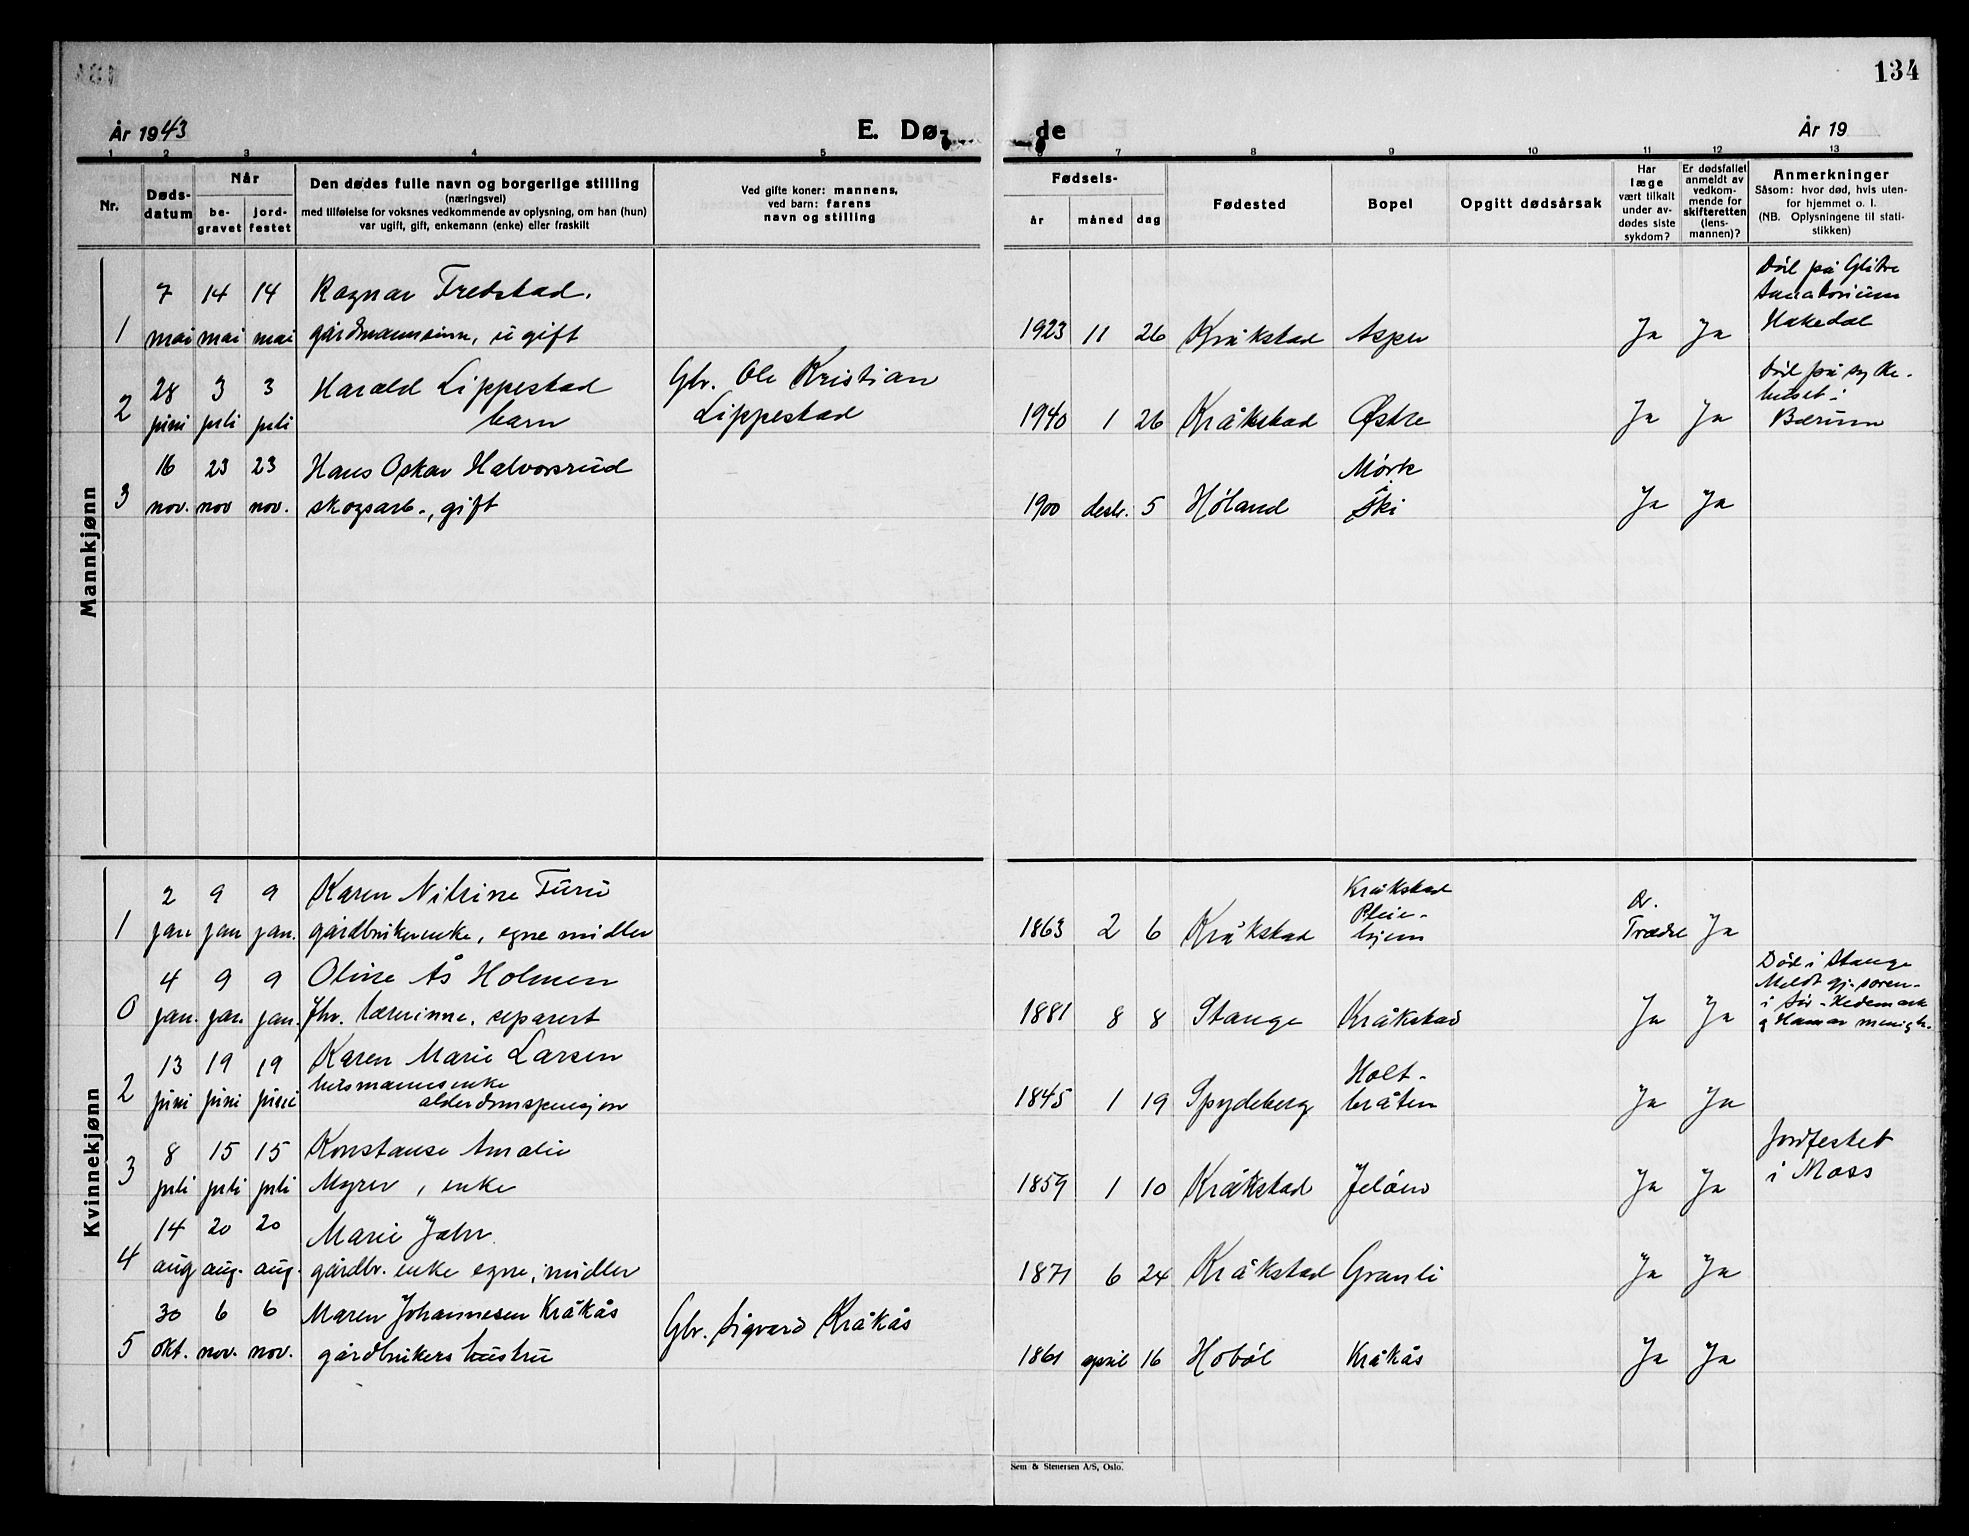 134
År 1943
E. Dø de
År 19
1 2 3 4 5 7 8 9 10 11 12 13
Nr.
Døds-
datum
Når
be-
gravet
jord-
festet
Den dødes fulle navn og borgerlige stilling
(næringsvei)
med tilføielse for voksnes vedkommende av oplysning, om han (hun)
var ugift, gift, enkemann (enke) eller fraskilt
Ved gifte koner: mannens,
ved barn: farens
navn og stilling
Fødsels-
år
måned
dag
Fødested
Bopel
Opgitt dødsårsak
Har
læge
vært tilkalt
under av-
dødes siste
sykdom?
Er dødsfallet
anmeldt av
vedkom-
mende for
skifteretten
(lens-
mannen)?
Anmerkninger
Såsom: hvor død, hvis uten-
for hjemmet o. l.
(NB. Oplysningene til stati-
stikken)
Mannkjønn
7 14 14 Ragnar Fredstad.
1 mai mai mai gårdmannsønn, ugift
1923 11 26 Kråkstad Asper Ja Ja
Død på Glitre
Sanatorium
Hakedal
28 3 3 Harald Lippestad
2 juni juli juli barn
Gbr. Ole Kristian
Lippestad
1940 1 26 Kråkstad Østre Ja Ja
Død på syke-
huset i
Bærum
16 23 23 Hans Oskar Halvorsrud
3 nov. nov nov. skogsarb., gift
1900 desbr. 5 Høland
Mørk
i
Ski
Ja Ja
Kvinnekjønn
2 9 9 Karen Nilsine Furu
1 jan jan jan. gårdbrukerenke, egne midler
1863 2 6 Kråkstad
Kråkstad
Pleie-
hjem
Dr.
Trædre Ja
4 9 9 Oline Ås Holmen
0 jan. jan. jan. fhv. lærerinne, separert
1881 8 8 Stange Kråkstad Ja Ja
Død i Stange
Meldt gj. soren-
i Sør-Hedemark
og Hamar menigh.
13 19 19 Karen Marie Larsen
2 juni juni juni husmannsenke
alderdomspensjon
1845 1 19 Spydeberg
Holt-
bråten
Ja Ja
8 15 15 Konstanse Amalie
3 juli juli juli Myrer, enke
1859 1 10 Kråkstad Jeløen Ja Ja
Jordfestet
i Moss
14 20 20 Marie Jahr
4 aug aug. aug. gårdbr. enke egne, midler
1871 6 24 Kråkstad Granli Ja Ja
30 6 6 Maren Johannesen Kråkås
5 okt. nov. nov. gårdbrukers hustru
Gbr. Sigvard Kråkås
1861 april 16 Hobøl Kråkås Ja Ja
Sem & Stenersen A/S, Oslo.